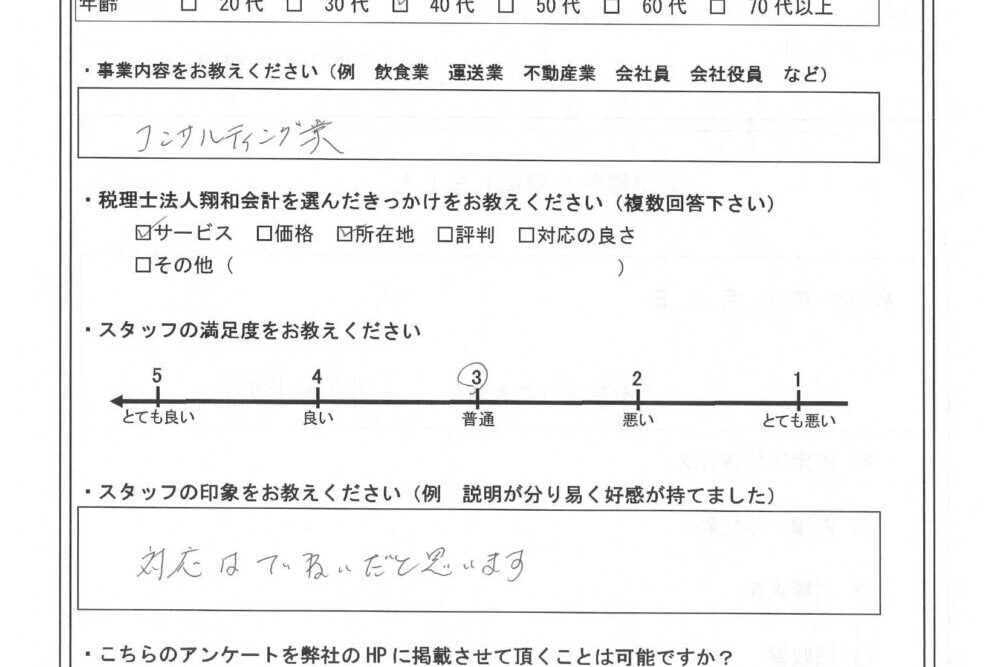 年齢 □ 20代 □ 30代 ☑ 40代 □ 50代 □ 60代 □ 70代以上
・事業内容をお教えください（例　飲食業　運送業　不動産業　会社員　会社役員　など）
コンサルティング業
・税理士法人翔和会計を選んだきっかけをお教えください（複数回答下さい）
☑サービス □価格 ☑所在地 □評判 □対応の良さ
□その他（　　　　　　　　　　　　　　　　　　　）
・スタッフの満足度をお教えください
5 4 3 2 1
とても良い 良い 普通 悪い とても悪い
・スタッフの印象をお教えください（例　説明が分り易く好感が持てました）
対応はていねいだと思います
・こちらのアンケートを弊社のHPに掲載させて頂くことは可能ですか？